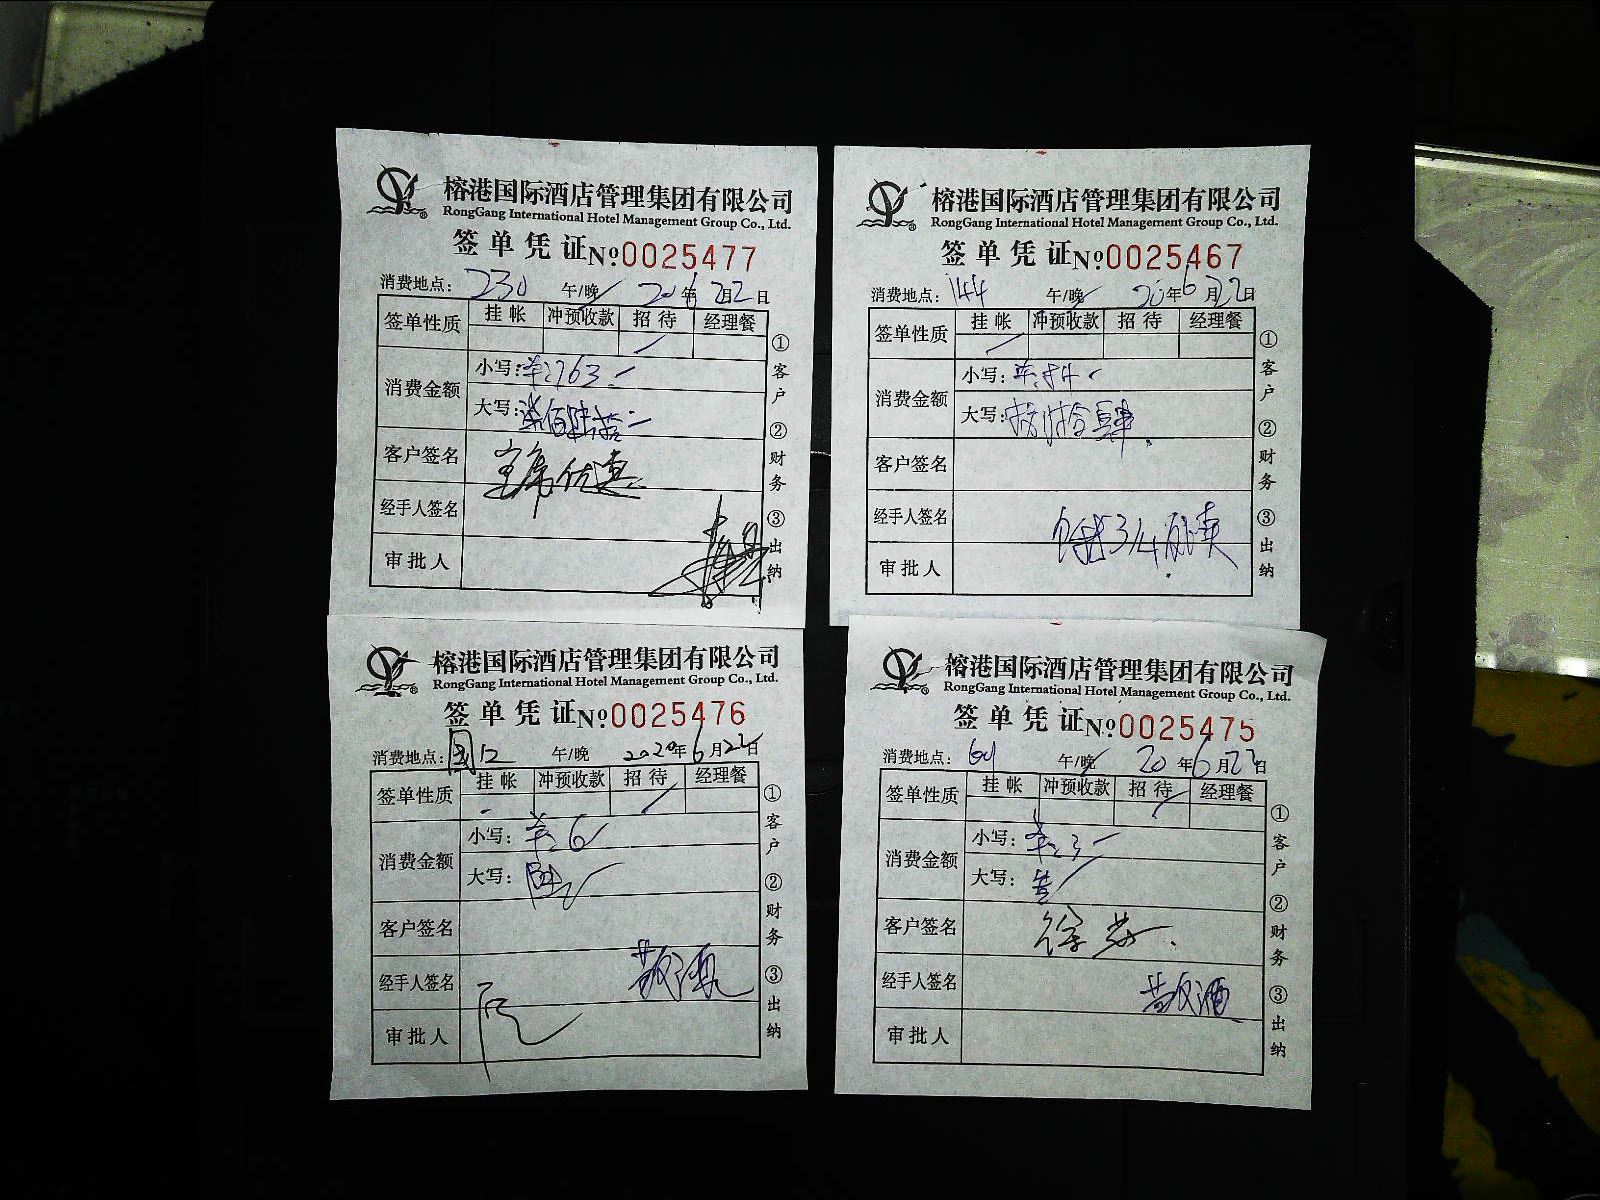 榕港国际酒店管理集团有限公司
RongGang International Hotel Management Group Co., Ltd.
签单凭证 No 0025477
消费地点: 230 午/晚 20年6月22日
签单性质 挂帐 冲预收款 招待 经理餐
消费金额 小写: 763
大写: 柒佰陆拾
客户签名
经手人签名
审批人
①客户 ②财务 ③出纳
榕港国际酒店管理集团有限公司
RongGang International Hotel Management Group Co., Ltd.
签单凭证 No 0025467
消费地点: 144 午/晚 20年6月22日
签单性质 挂帐 冲预收款 招待 经理餐
消费金额 小写: 84
大写: 捌拾肆
客户签名
经手人签名 3/4
审批人
①客户 ②财务 ③出纳
榕港国际酒店管理集团有限公司
RongGang International Hotel Management Group Co., Ltd.
签单凭证 No 0025476
消费地点: 12 午/晚 2020年6月22日
签单性质 挂帐 冲预收款 招待 经理餐
消费金额 小写: 6
大写: 陆
客户签名
经手人签名 敬酒
审批人
①客户 ②财务 ③出纳
榕港国际酒店管理集团有限公司
RongGang International Hotel Management Group Co., Ltd.
签单凭证 No 0025475
消费地点: 午/晚 20年6月22日
签单性质 挂帐 冲预收款 招待 经理餐
消费金额 小写: 3
大写: 叁
客户签名
经手人签名 敬酒
审批人
①客户 ②财务 ③出纳